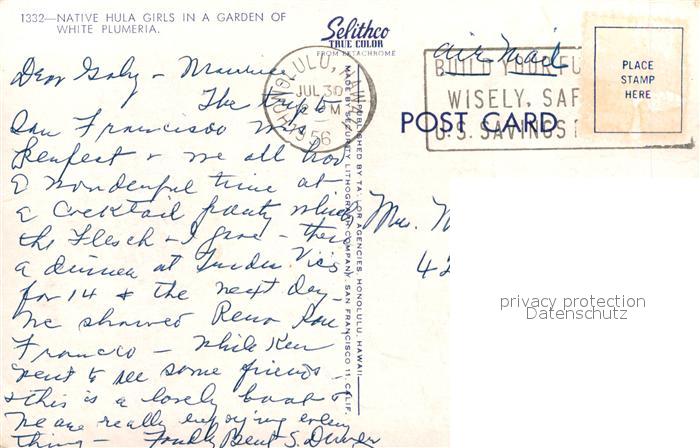 1332—NATIVE HULA GIRLS IN A GARDEN OF
WHITE PLUMERIA.
Selithco
TRUE COLOR
FROM EKTACHROME
HONOLULU, HAWAII
JUL 30
PM
1956
BUILD YOUR FU
WISELY, SAF
U.S. SAVINGS
air mail
POST CARD
PLACE
STAMP
HERE
Dear Gaby - Maurice
The trip to
San Francisco was
perfect & we all had
a wonderful time at
a cocktail party which
the Flesch & I gave - then
a dinner at Trader Vics
for 14 & the next day
we showed Reno San
Francisco - while Ken
went to see some friends -
& this is a lovely boat &
we are really enjoying every
thing - Fondly
PUBLISHED BY TAYLOR AGENCIES, HONOLULU, HAWAII
MADE BY SECURITY LITHOGRAPH COMPANY, SAN FRANCISCO 11, CALIF.
Mrs. M
42
privacy protection
Datenschutz